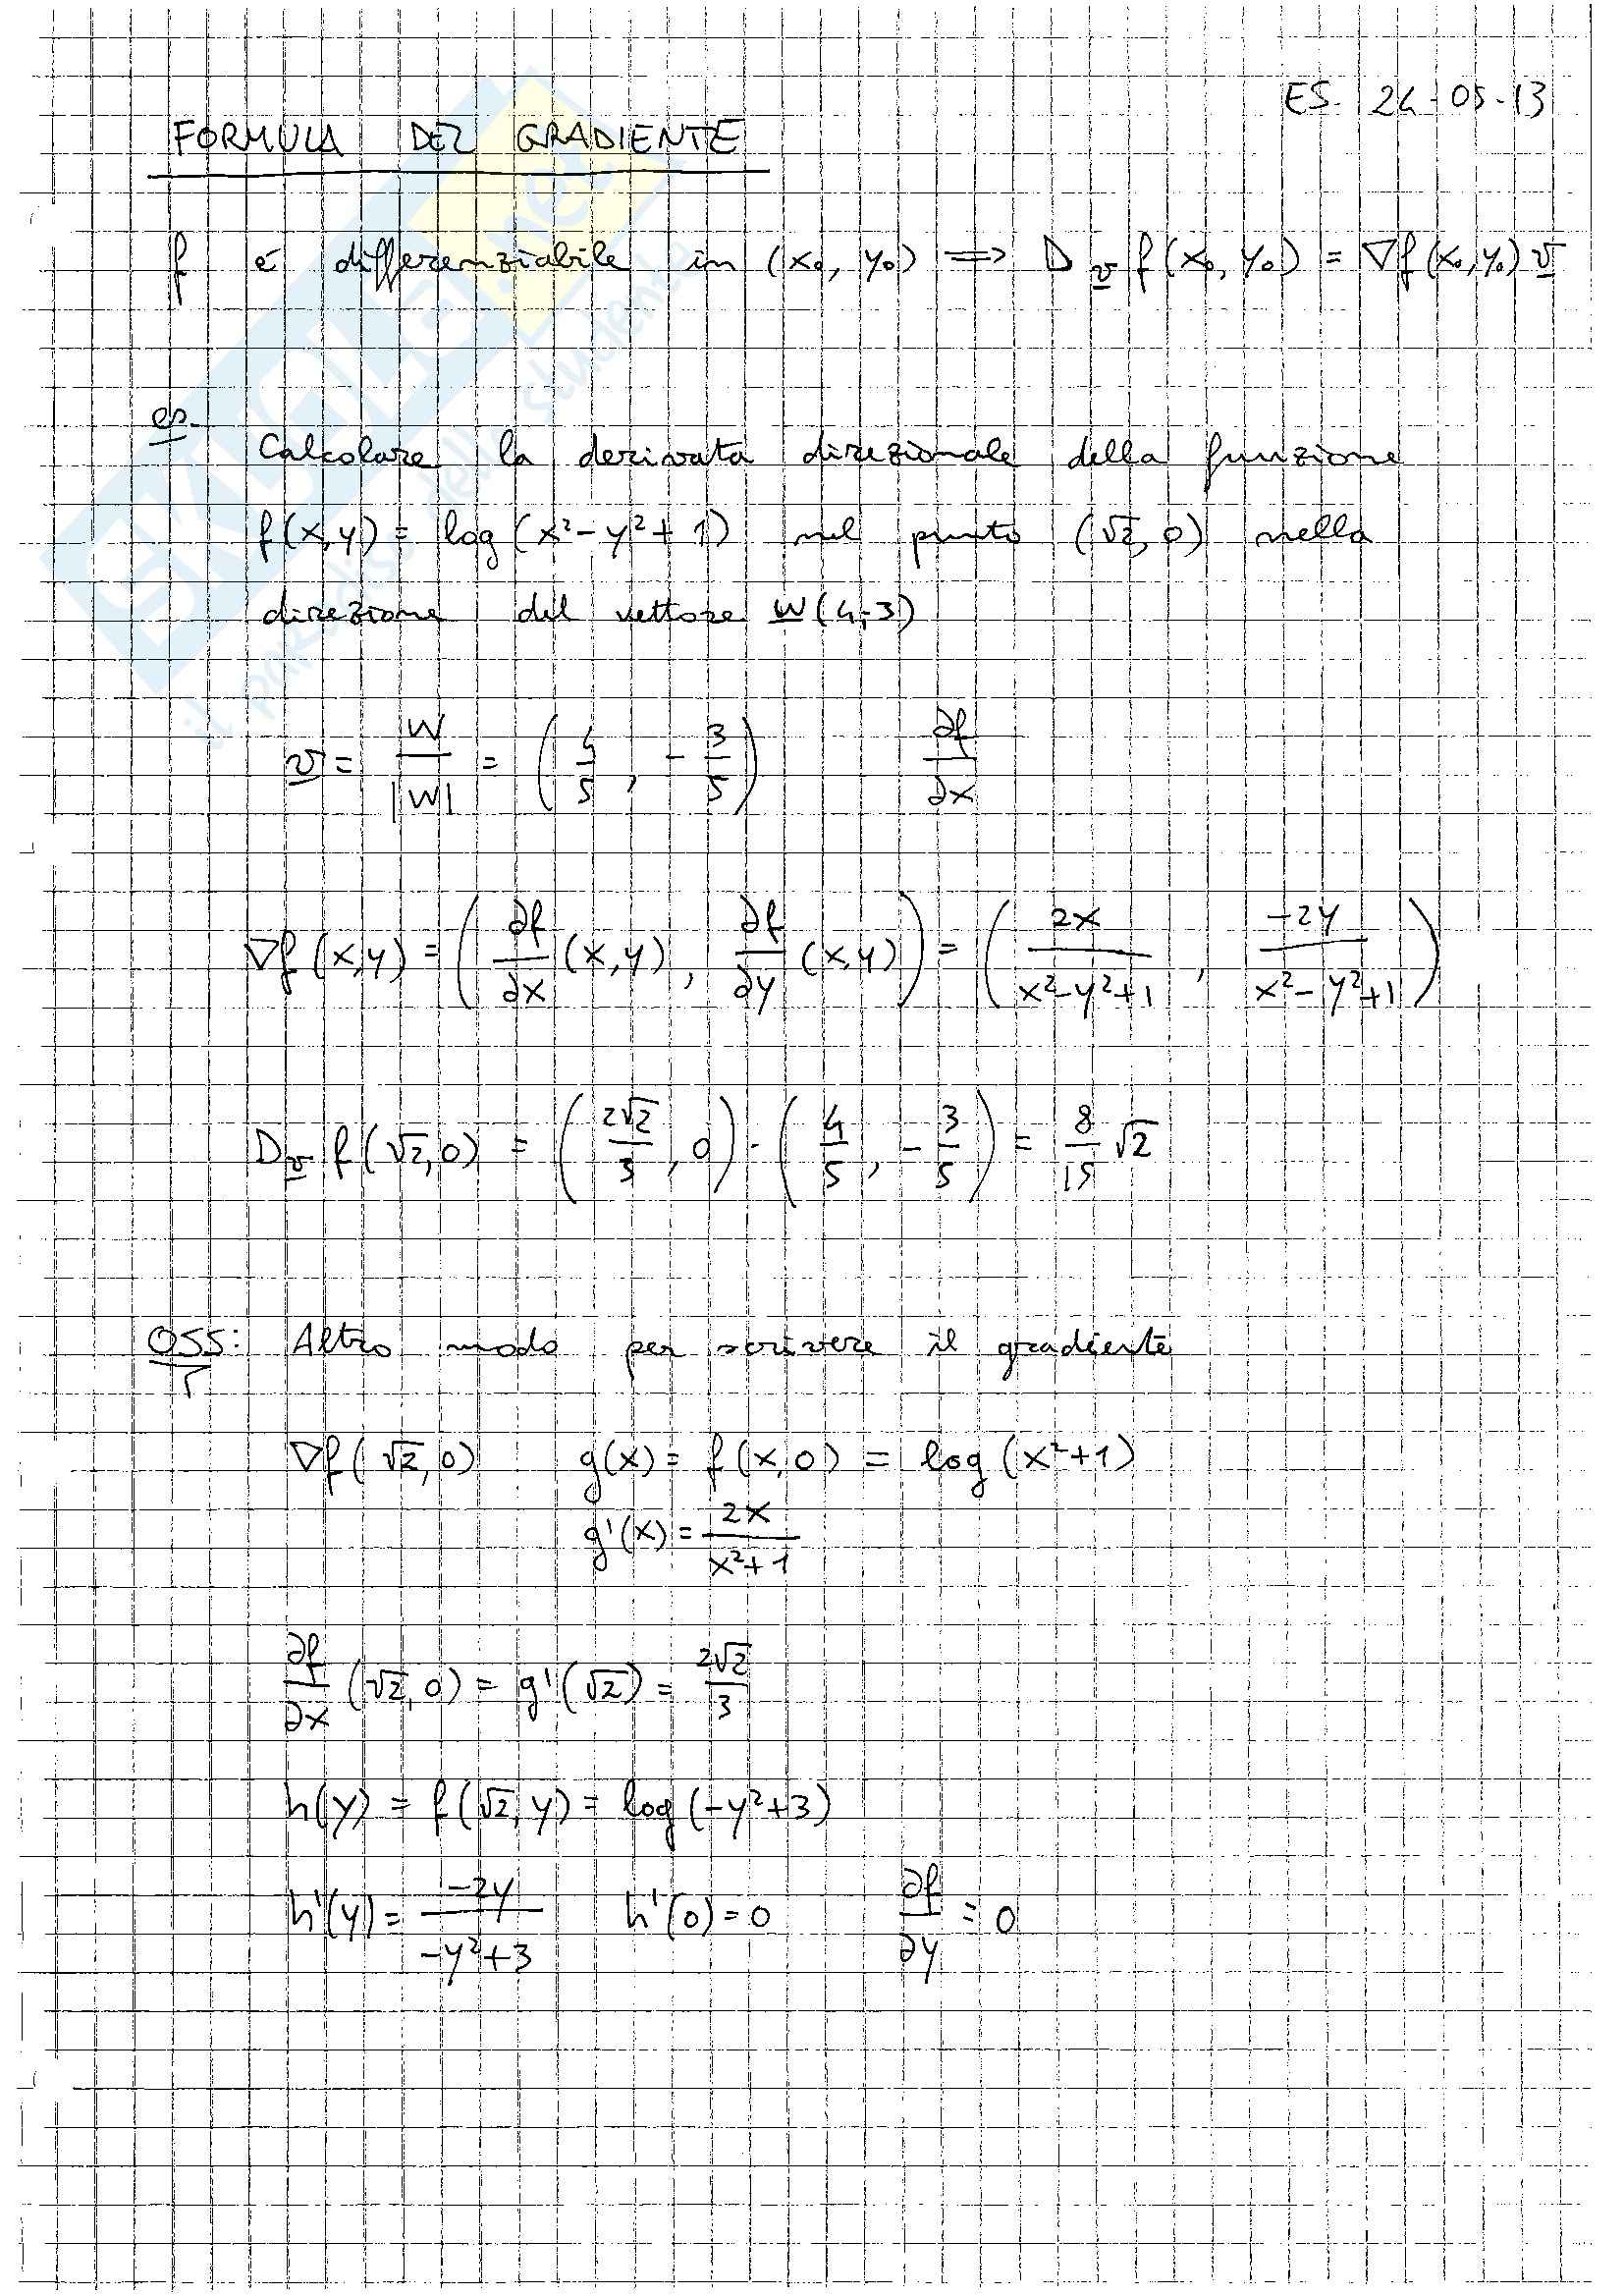 ES. 24-05-13
FORMULA DEL GRADIENTE
f è differenziabile in (x₀, y₀) ⟹ D_v f(x₀, y₀) = ∇f(x₀, y₀) v
es.
Calcolare la derivata direzionale della funzione
f(x,y) = log(x²-y²+1) nel punto (√2, 0) nella
direzione del vettore w(4,-3)
v = w/|w| = (4/5, -3/5) ∂f/∂x
∇f(x,y) = (∂f/∂x (x,y), ∂f/∂y (x,y)) = (2x/(x²-y²+1), -2y/(x²-y²+1))
D_v f(√2,0) = (2√2/3, 0) · (4/5, -3/5) = 8/15 √2
OSS: Altro modo per scrivere il gradiente
∇f(√2,0) g(x) = f(x,0) = log(x²+1)
g'(x) = 2x/(x²+1)
∂f/∂x (√2,0) = g'(√2) = 2√2/3
h(y) = f(√2,y) = log(-y²+3)
h'(y) = -2y/(-y²+3) h'(0)=0 ∂f/∂y = 0
SKUOLA.net
il paradiso dello studente